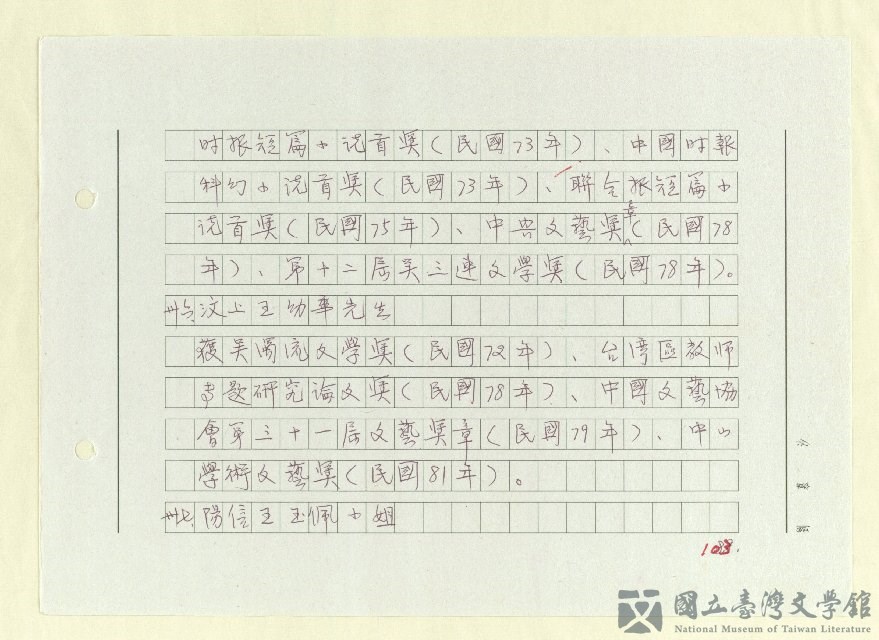 时报短篇小说首奖(民國73年)、中國时報
科幻小说首奖(民國73年)、聯合报短篇小
说首奖(民國75年)、中央文藝奖章(民國78
年)、第十二屆吴三連文學奖(民國78年)。
汶上王幼華先生
獲吴濁流文學奖(民國72年)、台湾區教师
专题研究論文奖(民國78年)、中國文藝協
會第三十一屆文藝奖章(民國79年)、中山
學術文藝奖(民國81年)。
陽信王玉佩小姐
103.
國立臺灣文學館
National Museum of Taiwan Literature